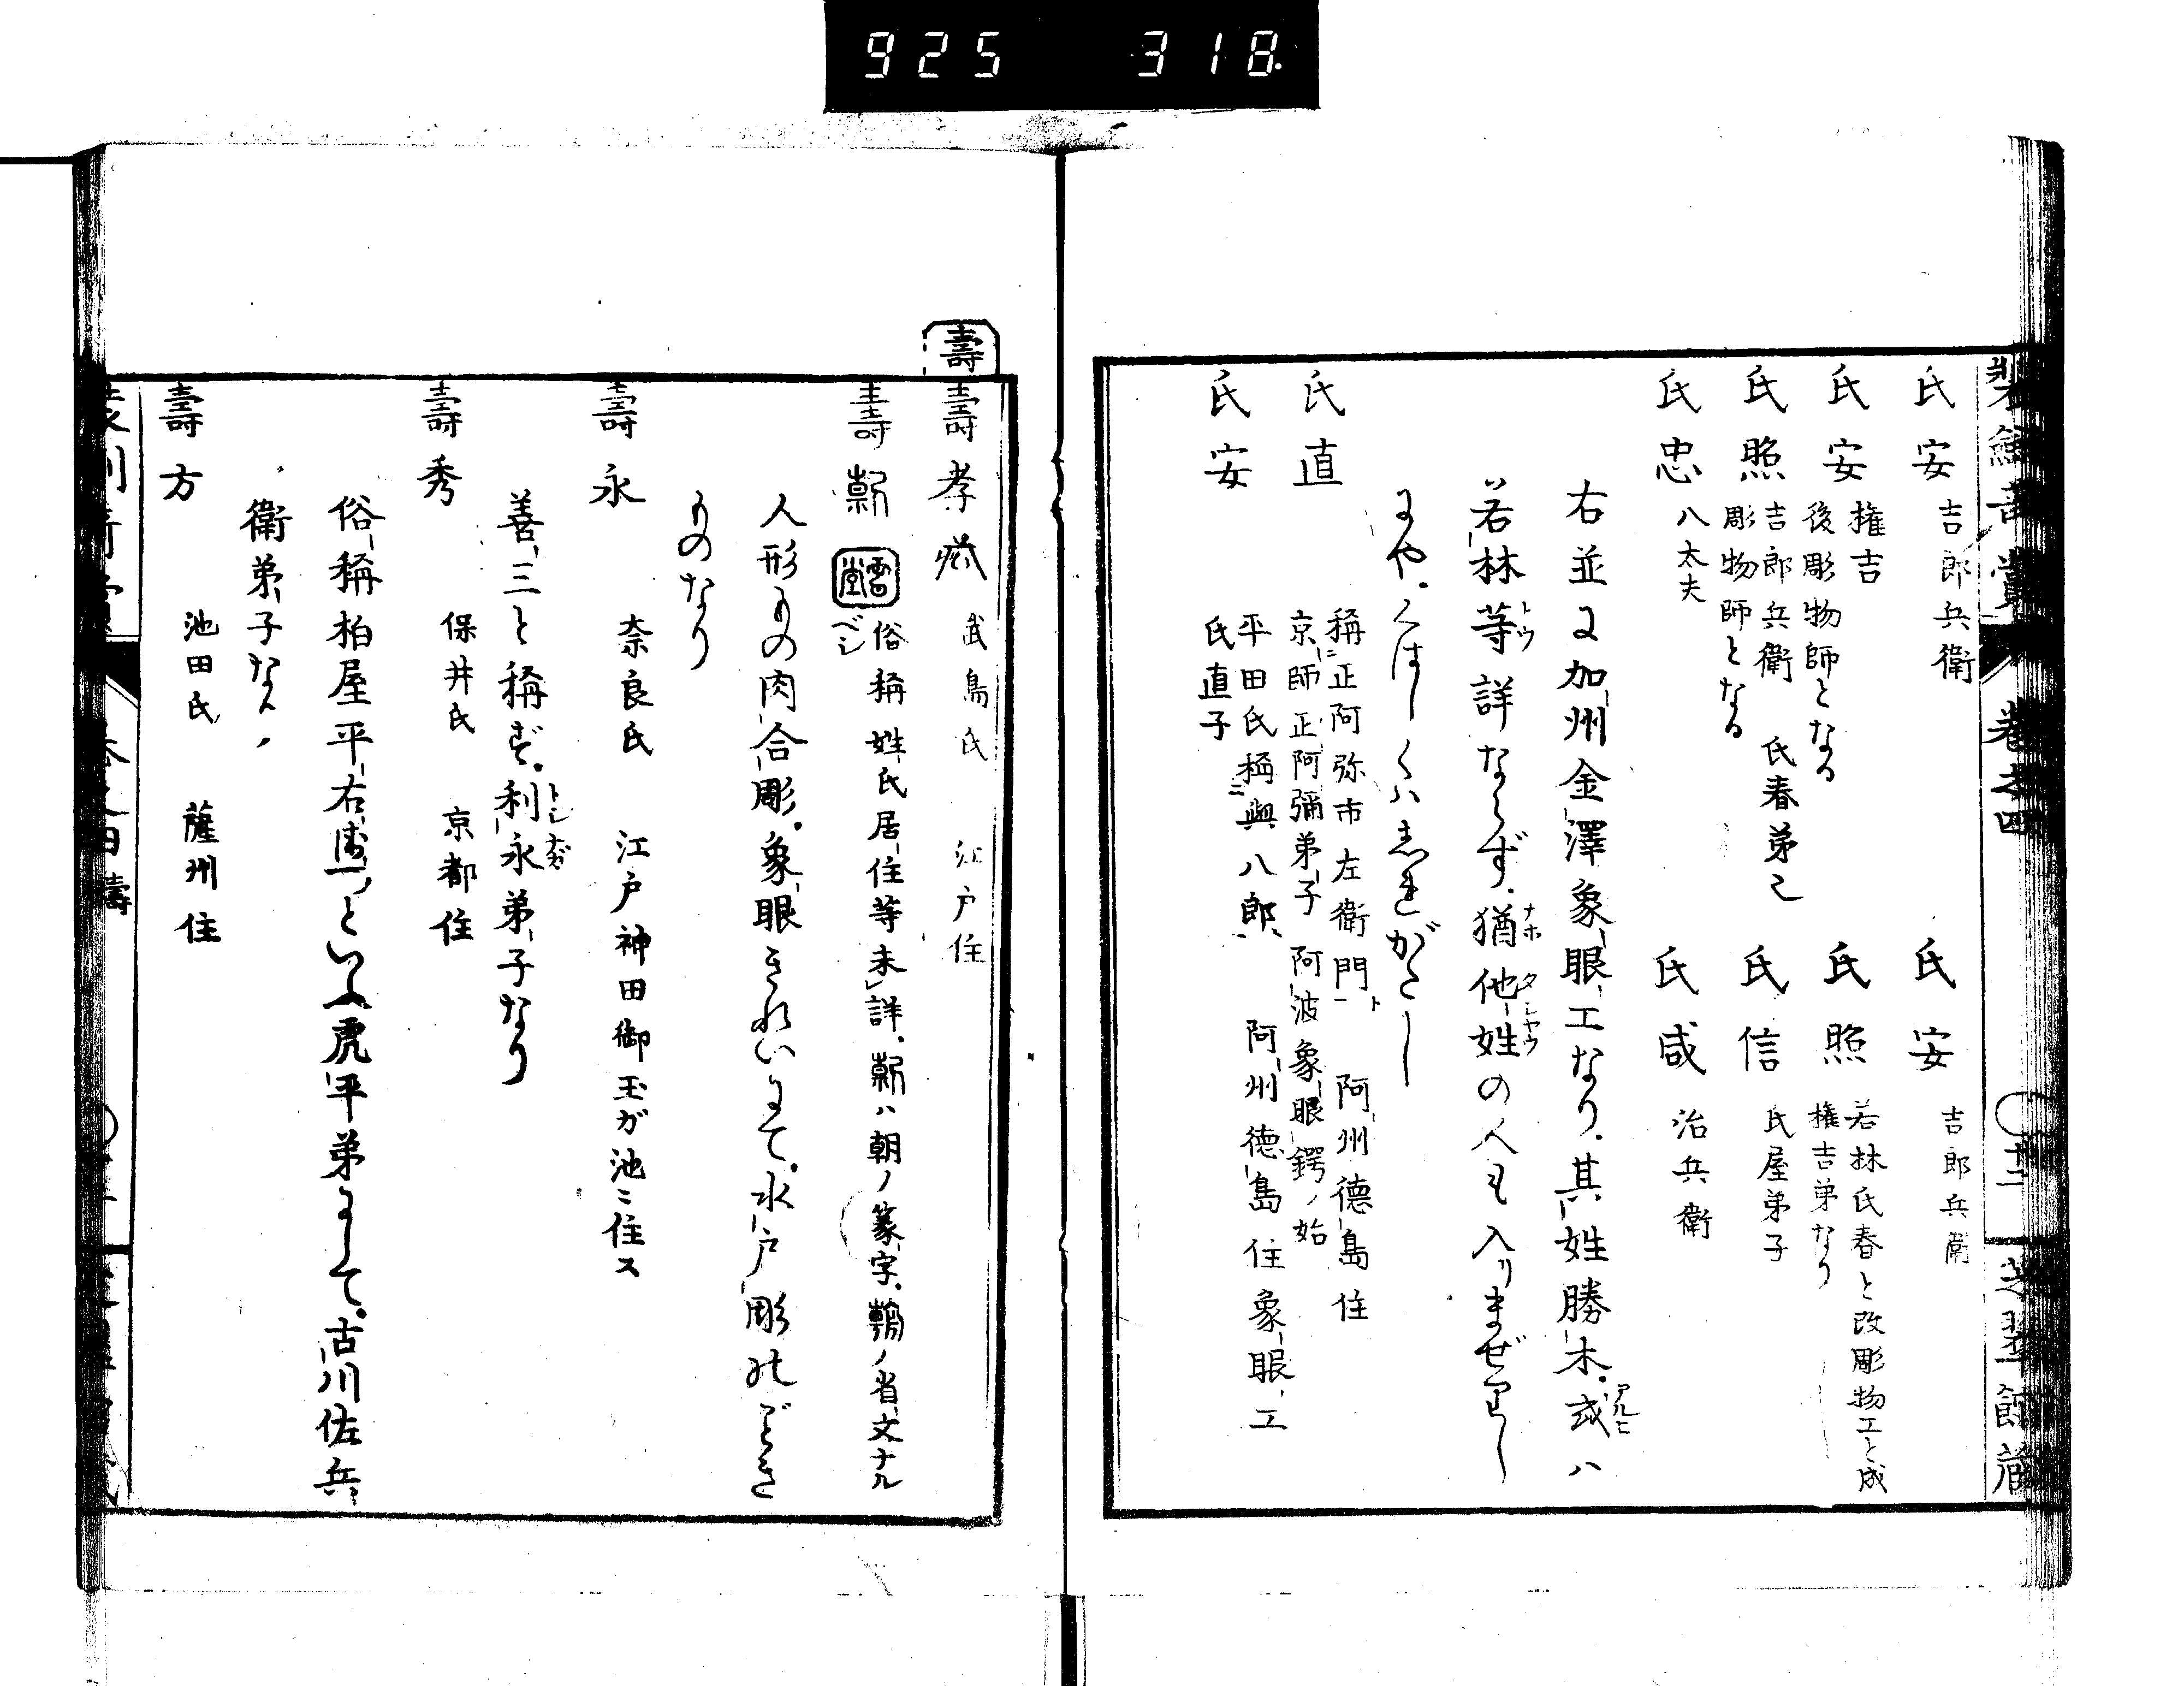 925 318
氏安 吉郎兵衛 氏安 吉郎兵衛
氏安 権吉 後彫物師となる 氏照 若林氏春と改彫物工と成 権吉弟なり
氏照 吉郎兵衛 氏春弟也 彫物師となる 氏信 氏屋弟子
氏忠 八太夫 氏咸 治兵衛
右並に加州金澤象眼工なり其姓勝木或ハ
若林等詳ならず猶他姓の人も入りまぜ
にやくはしくハしれがたし
氏直 稱正阿弥市左衛門 阿州德島住
京師正阿彌弟子 阿波象眼鍔ノ始
氏安 平田氏稱與八郎 阿州德島住象眼工
氏直子
壽
壽孝 武島氏 江戸住
壽 雲堂 俗稱姓氏居住等未詳 ハ朝ノ篆字 ノ省文ナル
ベシ
人形ものの肉合彫象眼きれいにて水戸彫のごとき
ものなり
壽永 奈良氏 江戸神田御玉ガ池ニ住ス
善三と稱ず利永弟子なり
壽秀 保井氏 京都住
俗稱柏屋平右衛一といふ虎平弟にして古川佐兵
衛弟子なり
壽方 池田氏 薩州住